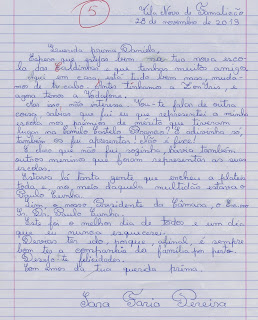 5
Vila Nova de Famalicão
28 de novembro de 2013
Querida prima, Daniela,
Espero que estejas bem na tua nova esco-
la das Caldinhas e que tenhas muitos amigos.
Aqui em casa está tudo bem mas mudá-
mos de tv cabo. Antes tínhamos a Zon e
agora temos a Vodafone.
Mas isso não interessa. Vou-te falar de outra
coisa, sabias que fui eu que representei a minha
escola nos prémios de mérito que tiveram
lugar na Camilo Castelo Branco? E adivinha só,
também os fui apresentar! Não é fixe!
É claro que não fui sozinha, havia também
outros meninos que foram representar as suas
escolas.
Estava lá tanta gente que encheu a plateia
toda e no meio daquela multidão estava o
Paulo Cunha.
Sim, o nosso Presidente da Câmara, o
Sr. Dr. Paulo Cunha.
Este foi o melhor dia de todos e um dia
que eu nunca esquecerei.
bom ter a companhia da família por perto.
Desejo-te felicidades.
Com amor da tua querida prima.
Sara Faria Pereira